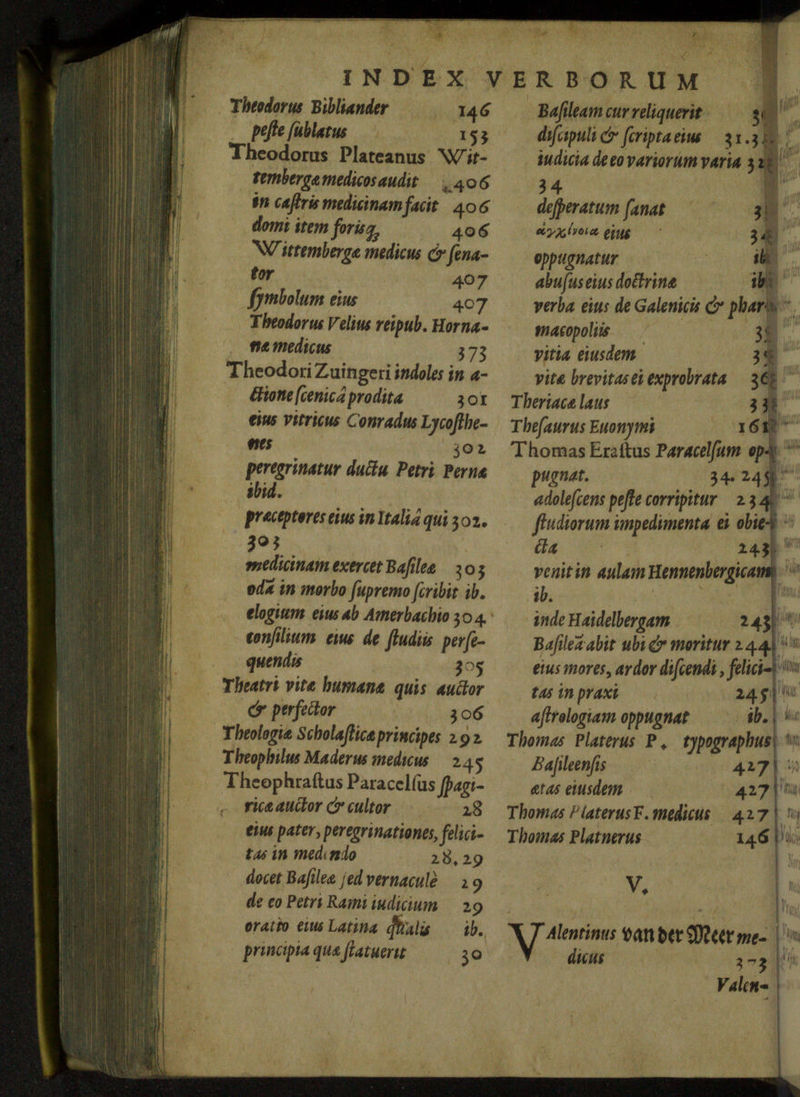 INDEX VERBORUM
Theodorus Bibliander 146
peſte ſublatus 153
Theodorus Plateanus Wit-
tembergæ medicos audit 406
in caſtris medicinam facit 406
domi item forisq, 406
Wittembergæ medicus & ſena-
tor 407
ſymbolum eius 407
Theodorus Velius reipub. Horna-
næ medicus 373
Theodori Zuingeri indoles in a-
ctione ſcenicâ prodita 301
eius vitricus Conradus Lycoſthe-
nes 302
peregrinatur ductu Petri Pernæ
ibid.
præceptores eius in Italiâ qui 302.
303
medicinam exercet Baſileæ 303
odā in morbo ſupremo ſcribit ib.
elogium eius ab Amerbachio 304.
conſilium eius de ſtudiis perſe-
quendis 305
Theatri vitæ humanæ quis auctor
& perfector 306
Theologiæ Scholaſticæ principes 292
Theophilus Maderus medicus 245
Theophraſtus Paracelſus ſpagi-
ricæ auctor & cultor 28
eius pater, peregrinationes, felici-
tas in medendo 28, 29
docet Baſileæ ſed vernaculè 29
de eo Petri Rami iudicium 29
oratio eius Latina qualis ib.
principia quæ ſtatuerit 30
Baſileam cur reliquerit
diſcipuli & ſcripta eius 31.
iudicia de eo variorum varia
34
deſperatum ſanat
ἀγχίνοια eius
oppugnatur
abuſus eius doctrinæ
verba eius de Galenicis & phar-
macopoliis
vitia eiusdem
vitæ brevitas ei exprobrata
Theriacæ laus
Theſaurus Euonymi
Thomas Eraſtus Paracelſum op-
pugnat. 34. 245
adoleſcens peſte corripitur 234
ſtudiorum impedimenta ei obie-
cta 243
venit in aulam Hennenbergicam
ib.
inde Haidelbergam 243
Baſileā abit ubi & moritur 244
eius mores, ardor diſcendi, felici-
tas in praxi 245
aſtrologiam oppugnat ib.
Thomas Platerus P. typographus
Baſileenſis 427
ætas eiusdem 427
Thomas Platerus F. medicus 427
Thomas Platnerus 146
V.
VAlentinus van der Meer me-
dicus 373
Valen-